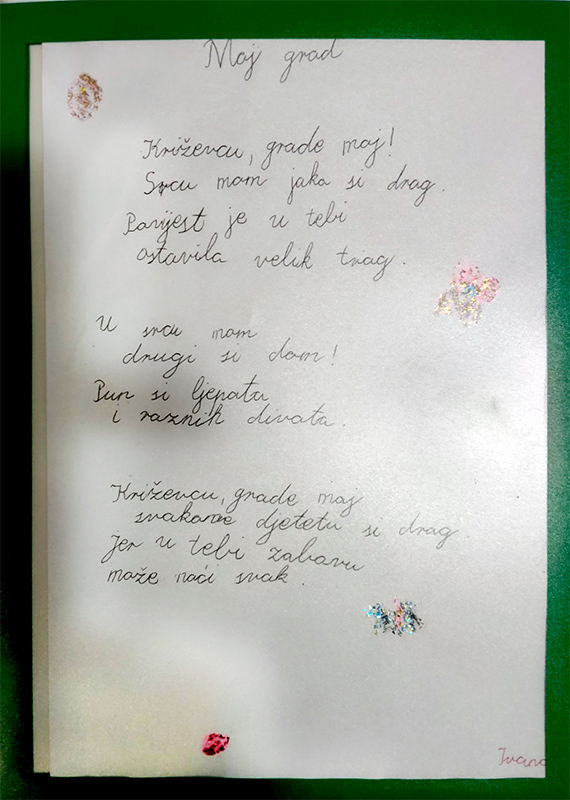 Moj grad
Križevcu, grade moj!
Srcu mom jako si drag.
Povijest je u tebi
ostavila velik trag.
U srcu mom
drugi si dom!
Pun si ljepota
i raznih divota.
Križevcu, grade moj
svakome djetetu si drag
jer u tebi zabavu
može naći svak.
Ivana